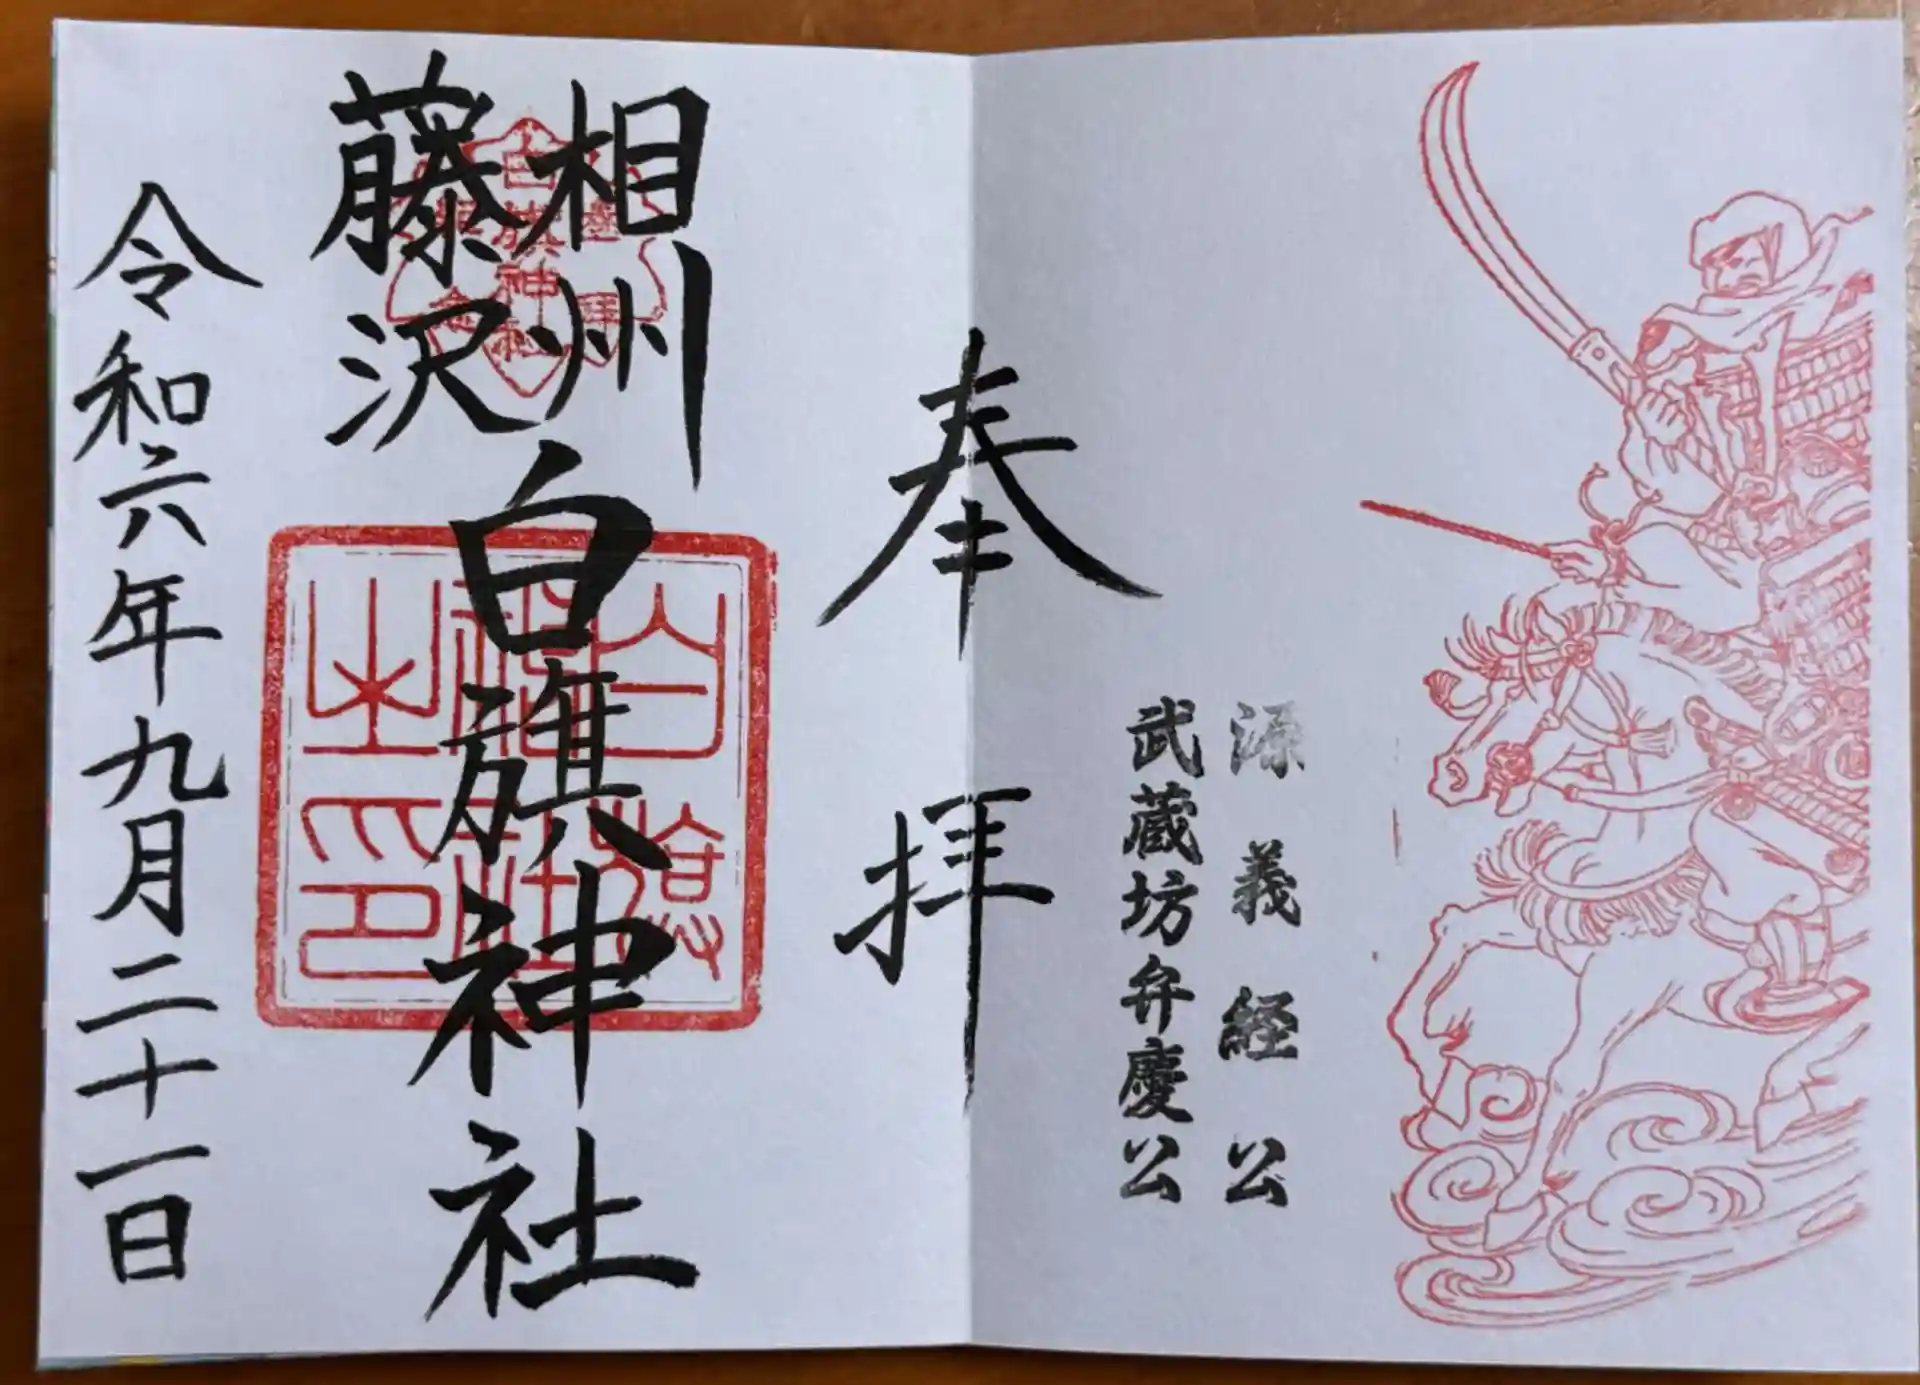 源義経公
武蔵坊弁慶公
奉拝
相州
藤沢
白旗神社
白旗神社之印
令和六年九月二十一日